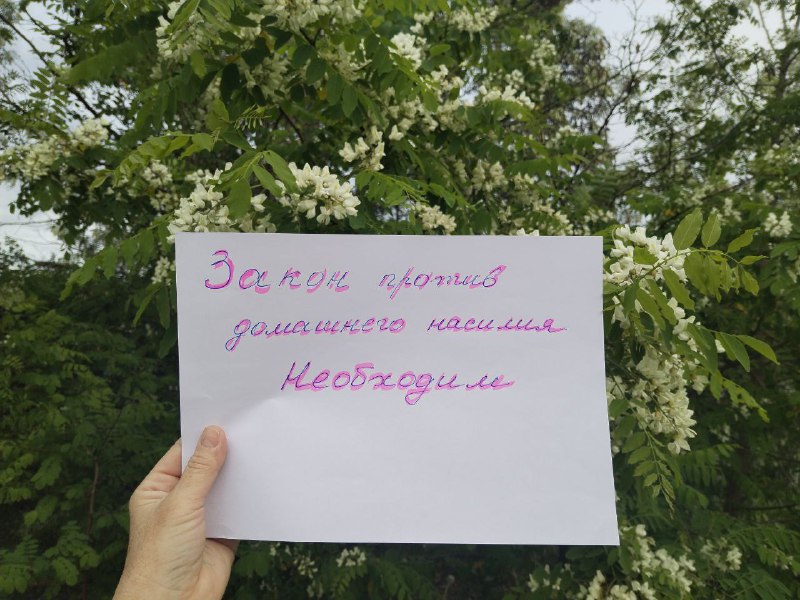 Закон против
домашнего насилия
Необходим